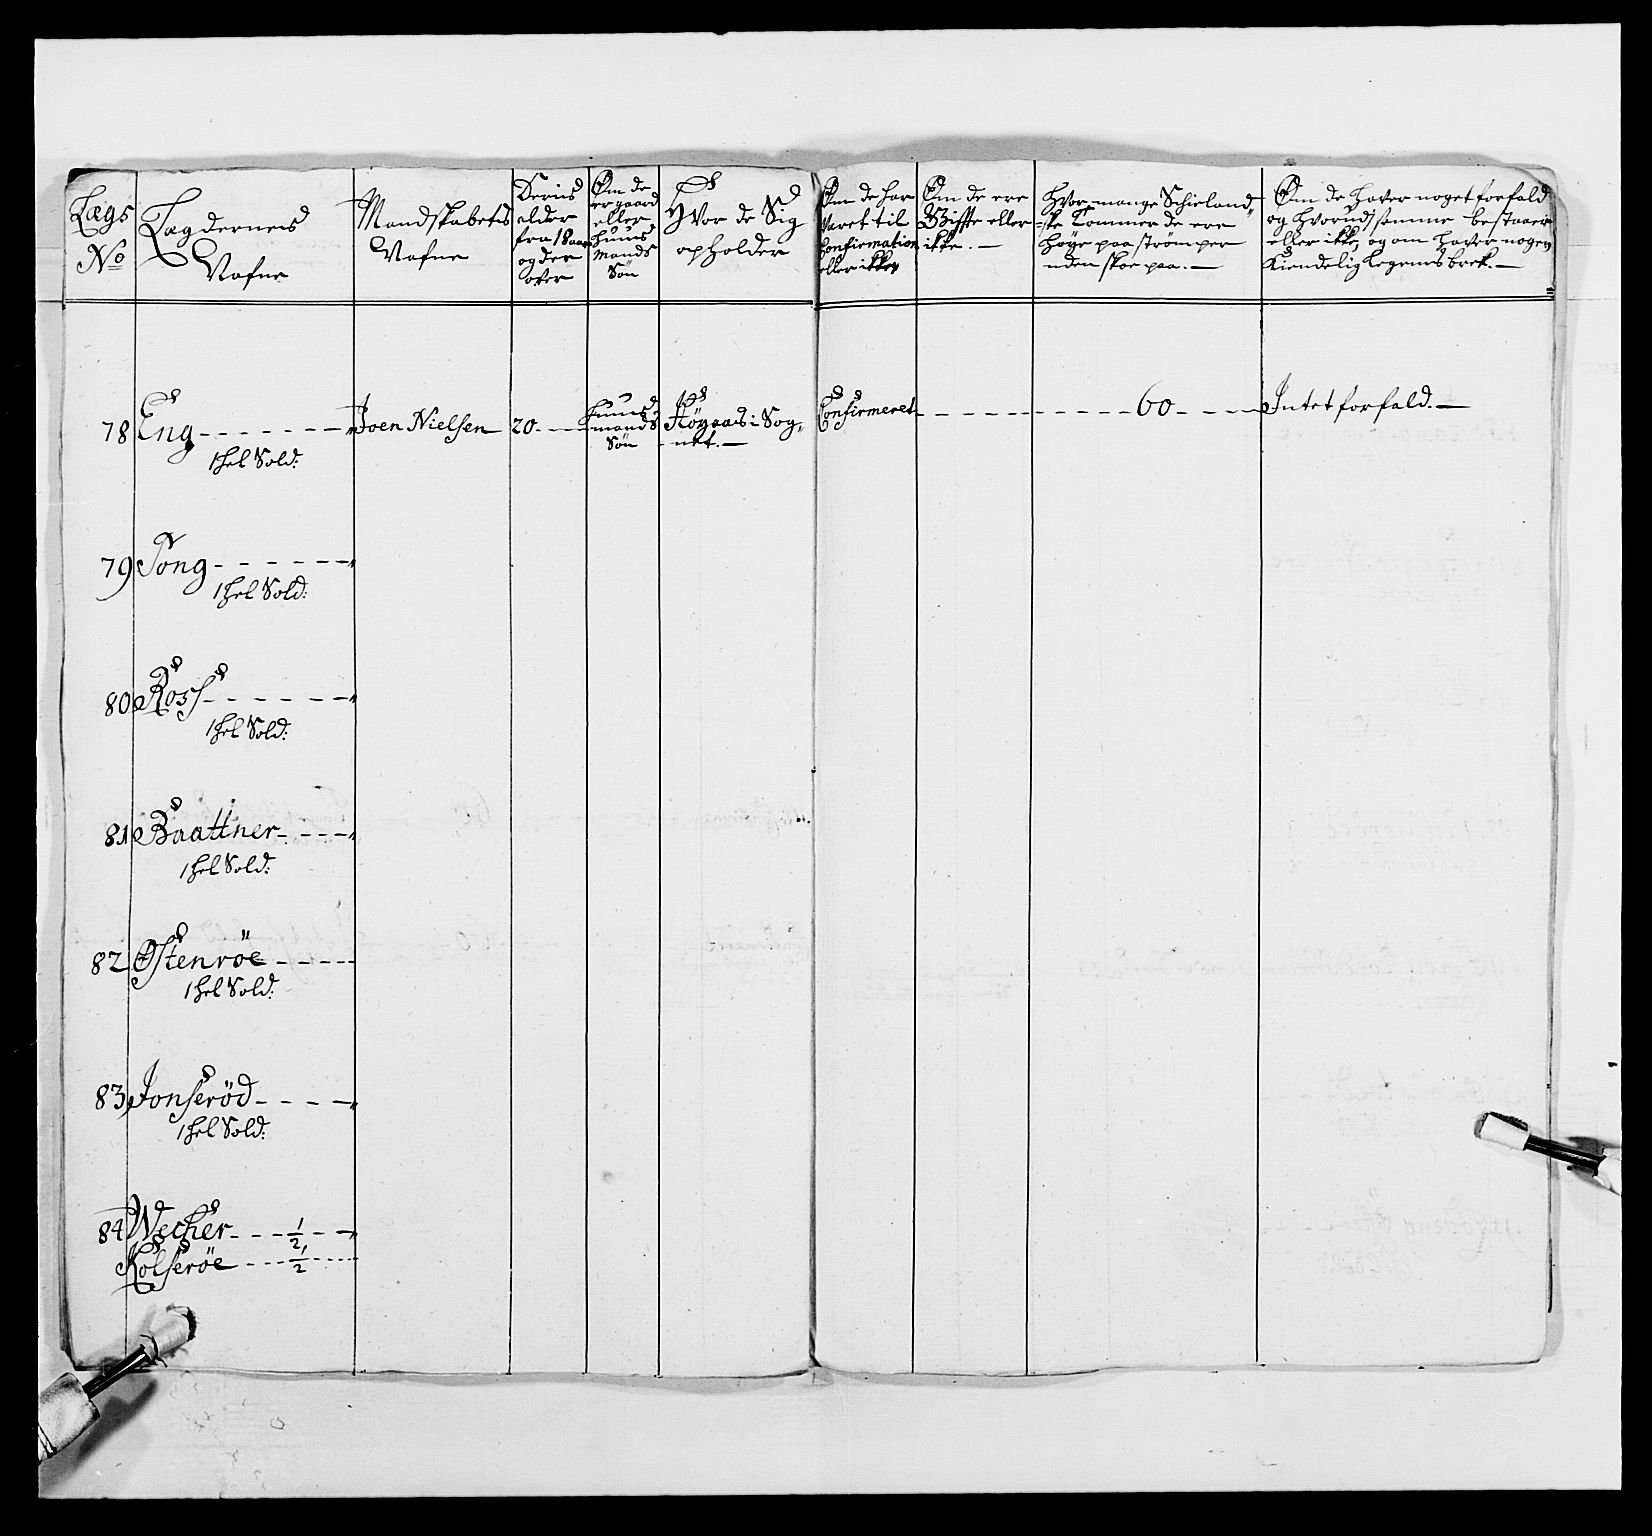 Lægs
No
Lægdernes
Nafne
Mandskabets
Nafne
Deris
alder
fra 18 aar
og der
over
Om de
er gaard
eller
huus
mands
Søn
Hvor de Sig
opholder
Om de har
været til
Confirmation
eller ikke,
Om de ere
Gifte eller
ikke. —
Hvor mange Schieland„
„ske Tommer de ere
høye paa strømper
uden skoe paa. —
Om de haver noget forfald
og hvorudj samme bestaaer
eller ikke, og om haver nogen
Kiendelig legems brek. —
78 Eng - - - - - - - Joen Nielsen 20. - - huus
mands
Søn
Høyaas i Sog„
net. —
Confirmeret - - - - - - - - - 60 - - - - Intet forfald. —
1 hel Sold:
79 Tong - - - - - - -
1 hel Sold:
80 Ross - - - - - - -
1 hel Sold:
81 Baattner - - - -
1 hel Sold:
82 Østenröe - - - - -
1 hel Sold:
83 Jonseröd - - - -
1 hel Sold:
84 Wecher - - - 1/2 - -
Kolseröe - - - 1/2 - - - -